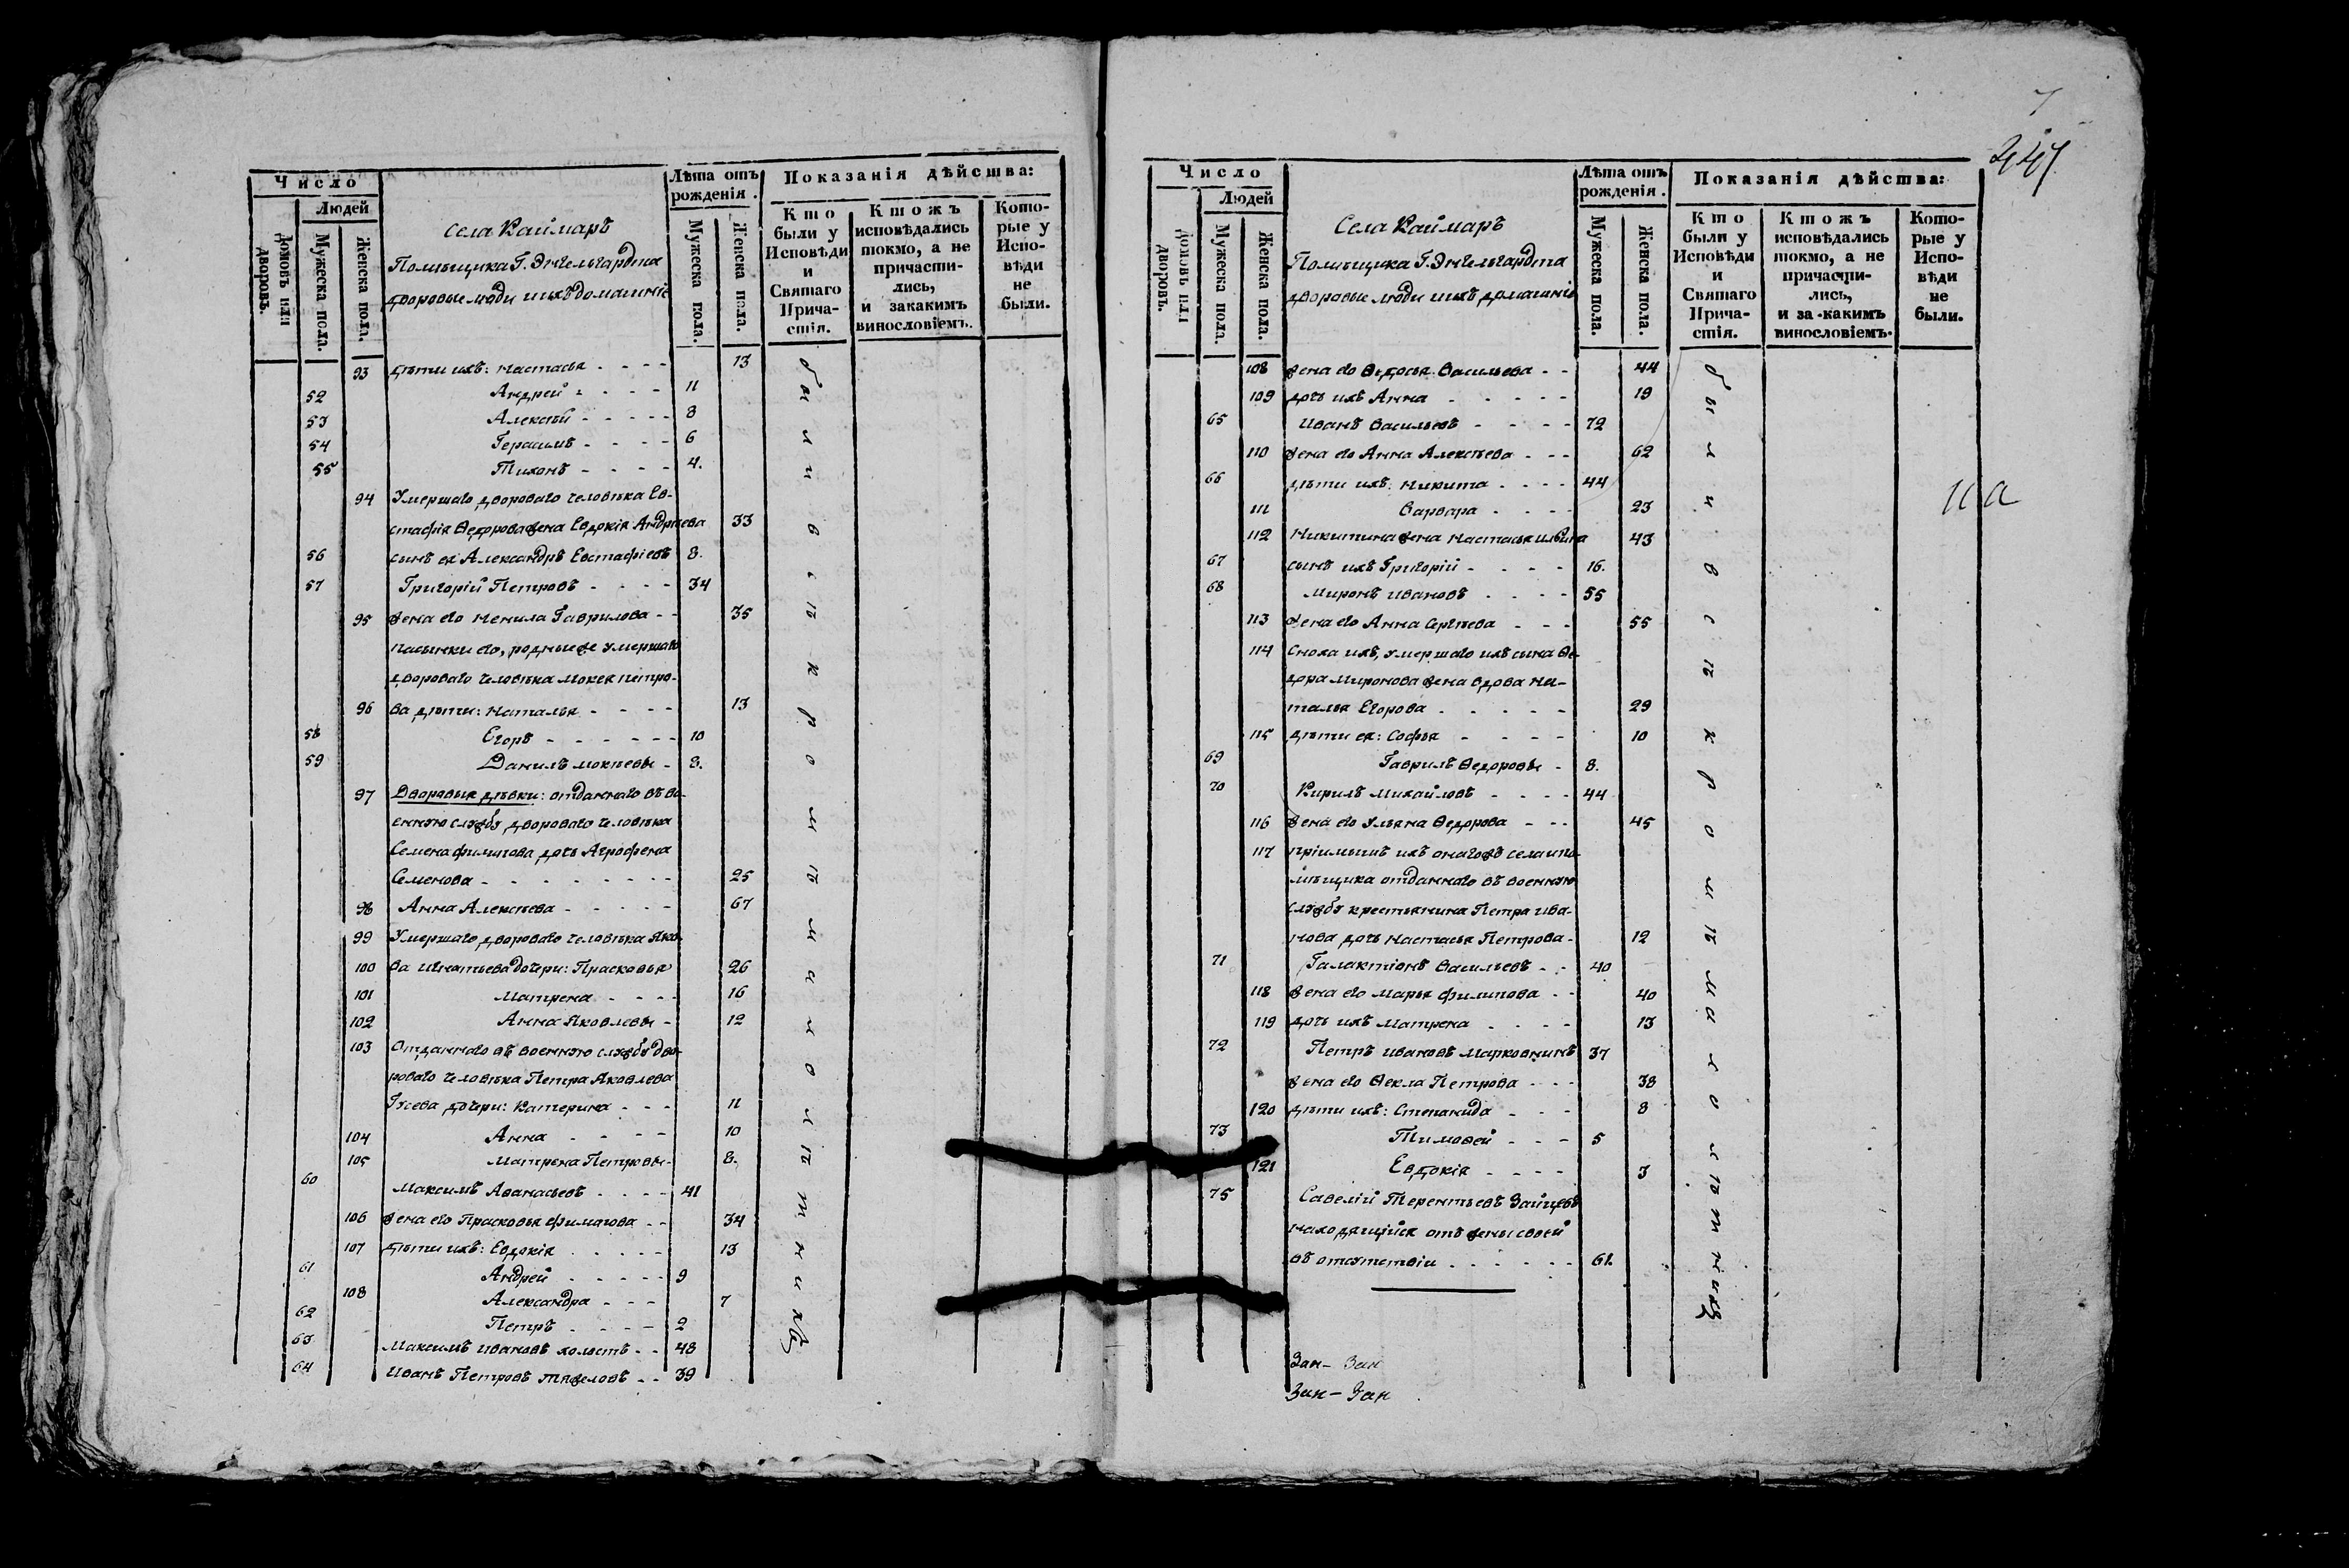 Число
Людей
Домовъ или дворовъ.
Мужеска пола.
Женска пола.
Села Каймаръ
Помѣщика Г. Энгельгардта
дворовые люди и ихъ домашніе
Лѣта отъ рожденія.
Мужеска пола.
Женска пола.
Показанія дѣйства:
Кто были у Исповѣди и Святаго Причастія.
Ктожъ исповѣдались токмо, а не причастились, и закакимъ винословіемъ.
Которые у Исповѣди не были.
93 дѣти ихъ: Настасья - - - - 13
52 Андрей - - - - 11
53 Алексѣй - - - - - 8
54 Герасимъ - - - - 6
55 Тихонъ - - - - 4.
94 Умершаго двороваго человѣка Ев-
стафія Ѳедорова жена Евдокія Андреева 33
56 сынъ ея Александръ Евстафіевъ 8.
57 Григорій Петровъ - - - - 34
95 жена его Ненила Гаврилова - - 35
пасынки его, родные же умершаго
двороваго человѣка Мокея Петро-
96 ва дѣти: Наталья - - - - 13
58 Егоръ - - - - - - 10
59 Данилъ Мокѣевы - 8.
97 Дворовыя дѣвки: отданнаго въ во-
енную службу двороваго человѣка
Семена Филипова дочь Агрофена
Семенова - - - - - - - - 25
98 Анна Алексѣева - - - - - 67
99 Умершаго двороваго человѣка Яко-
100 ва Игнатьева дочери: Прасковья 26
101 Матрена - - - - 16
102 Анна Яковлевы - 12
103 Отданнаго въ военную службу дво-
роваго человѣка Петра Яковлева
Гусева дочери: Катерина - - - 11
104 Анна - - - - 10
105 Матрена Петровы - 8.
60 Максимъ Аѳанасьевъ - - - - 41
106 жена его Прасковья Филипова - - 34
107 дѣти ихъ: Евдокія - - - - - 13
61 Андрей - - - - - 9
108 Александра - - - 7
62 Петръ - - - - 2
63 Максимъ Ивановъ холостъ - - 48
64 Иванъ Петровъ Тяжеловъ - - 39
были въ с
247
Число
Людей
Домовъ или дворовъ.
Мужеска пола.
Женска пола.
Села Каймаръ
Помѣщика Г. Энгельгардта
дворовые люди и ихъ домашніе
Лѣта отъ рожденія.
Мужеска пола.
Женска пола.
Показанія дѣйства:
Кто были у Исповѣди и Святаго Причастія.
Ктожъ исповѣдались токмо, а не причастились, и за какимъ винословіемъ.
Которые у Исповѣди не были.
108 жена его Ѳедосья Васильева - - 44
109 дочь ихъ Анна - - - - - 19
65 Иванъ Васильевъ - - - - 72
110 жена его Анна Алексѣева - - - 62
66 дѣти ихъ: Никита - - - - 44
111 Варвара - - - - 23
112 Никитина жена Настасья Ильина 43
67 сынъ ихъ Григорій - - - - 16.
68 Миронъ Ивановъ - - - - 55
113 жена его Анна Сергѣева - - - 55
114 Сноха ихъ, умершаго ихъ сына Ѳе-
дора Миронова жена вдова На-
талья Егорова - - - - - 29
115 дѣти ея: Софья - - - - 10
69 Гаврилъ Ѳедоровы - 8.
70 Кирилъ Михайловъ - - - - 44
116 жена его Ульяна Ѳедорова - - - 45
117 пріимышъ ихъ онагожъ села и по-
мѣщика отданнаго въ военную
службу крестьянина Петра Ива-
нова дочь Настасья Петрова - 12
71 Галактіонъ Васильевъ - - 40
118 жена его Марья Филипова - - 40
119 дочь ихъ Матрена - - - - 13
72 Петръ Ивановъ Марковнинъ 37
жена его Ѳекла Петрова - - - 38
120 дѣти ихъ: Степанида - - - 8
73 Тимоѳей - - - 5
121 Евдокія - - - - 3
75 Савелій Терентьевъ Зайцевъ
находящійся отъ жены своей
въ отсутствіи - - - - - - 61.
были въ с